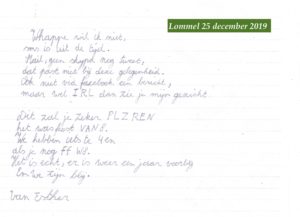 Lommel 25 december 2019
Whappe wil ik niet,
sms is uit de tijd.
Mail, geen skype nog tweet,
dat past niet bij deze gelegenheid.
Ook niet via facebook een bericht,
maar wel IRL dan zie je mijn gezicht
Dit zal je zeker PLZ REN
het was VAN
We hebben iets te
als je nog ff W8.
Het is echt, er is weer een jaar voorbij
En we zijn blij.
Van Esther